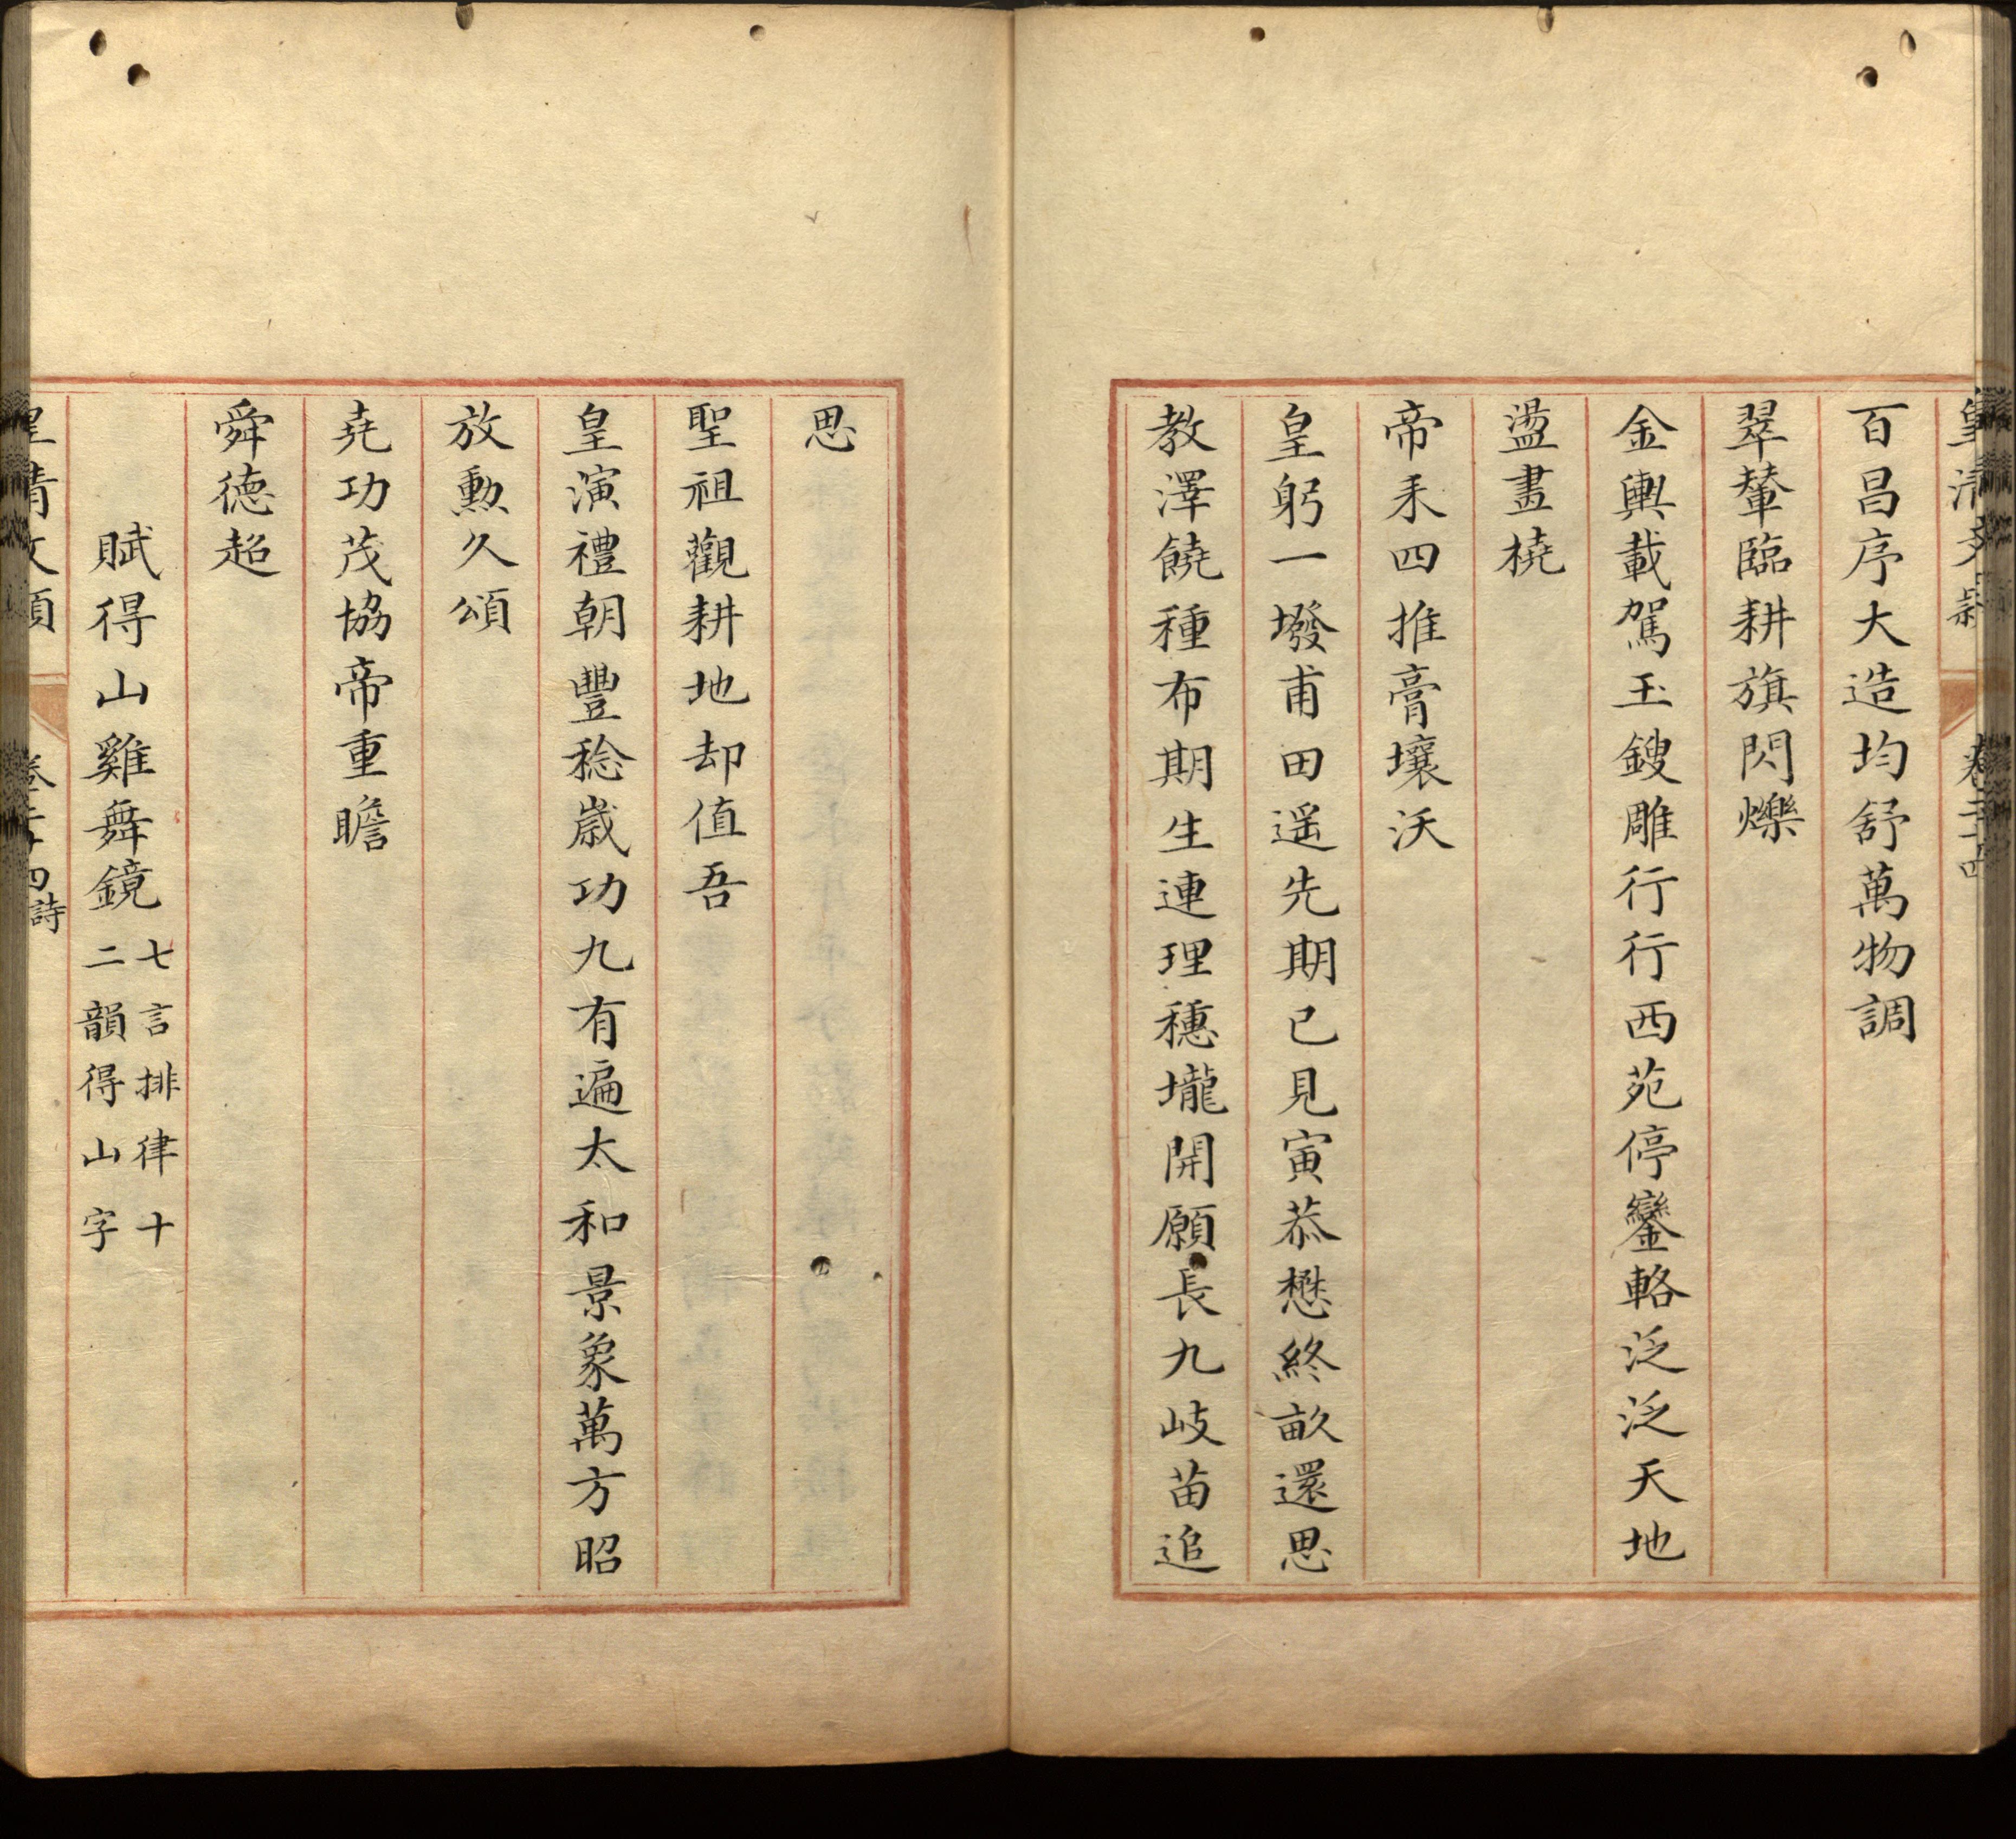 皇清文潁　卷二十四
百昌序大造均舒萬物調
翠輦臨耕旗閃爍
金輿載駕玉鎪雕行行西苑停鑾輅泛泛天地
盪畫橈
帝耒四推膏壤沃
皇躬一墢甫田遥先期已見寅恭懋終畝還思
教澤饒種布期生連理穗壠開願長九岐苗追
思
聖祖觀耕地却值吾
皇演禮朝豐稔歳功九有遍太和景象萬方昭
放勳久頌
堯功茂協帝重瞻
舜德超
賦得山雞舞鏡七言排律十
二韻得山字
皇清文潁　卷二十四詩